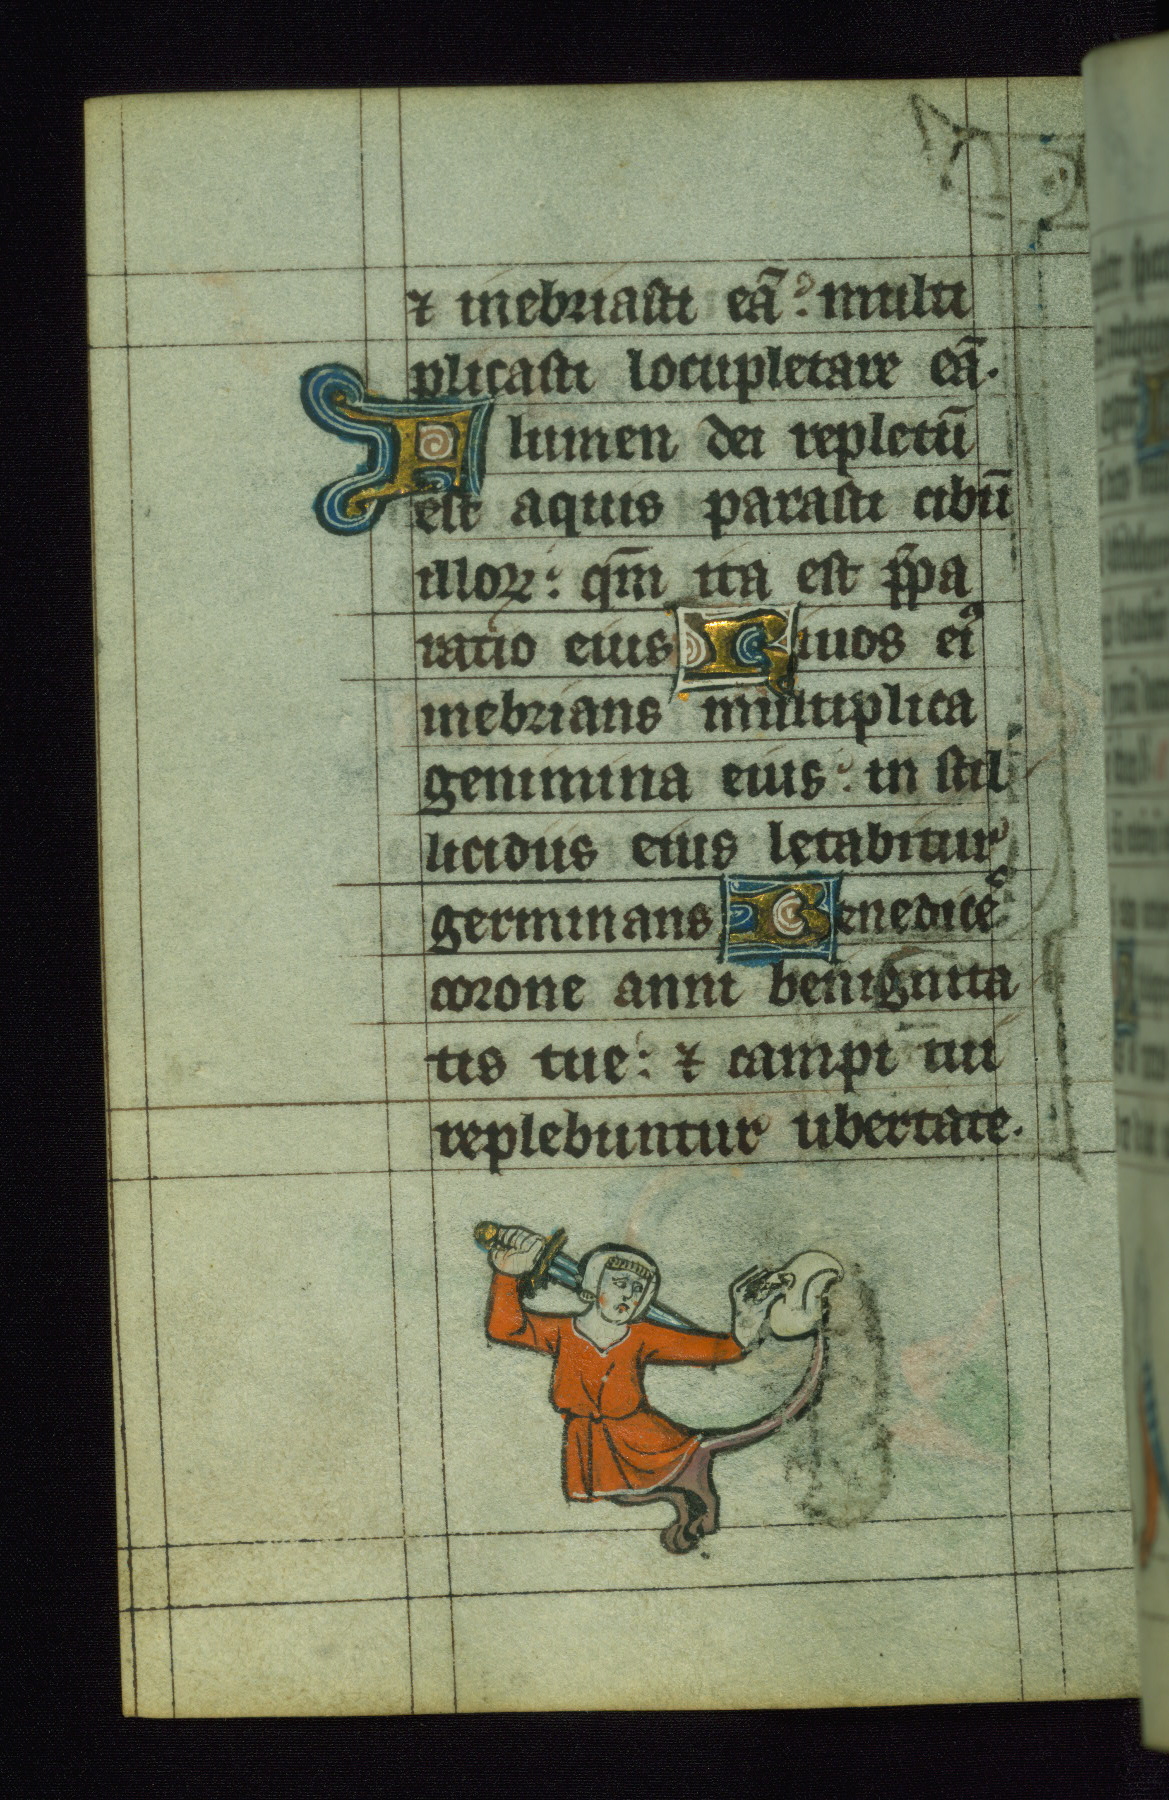 ⁊ inebriasti eā: multi
plicasti locupletare eā.
Flumen dei repletū
est aquis parasti cibū
illoꝝ: qm̄ ita est p̄pa
ratio eius Riuos eiꝰ
inebrians multiplica
genimina eius: in stil
licidiis eius lętabitur
germinans Benedicē
corone anni benignita
tis tue: ⁊ campi tui
replebuntur ubertate.